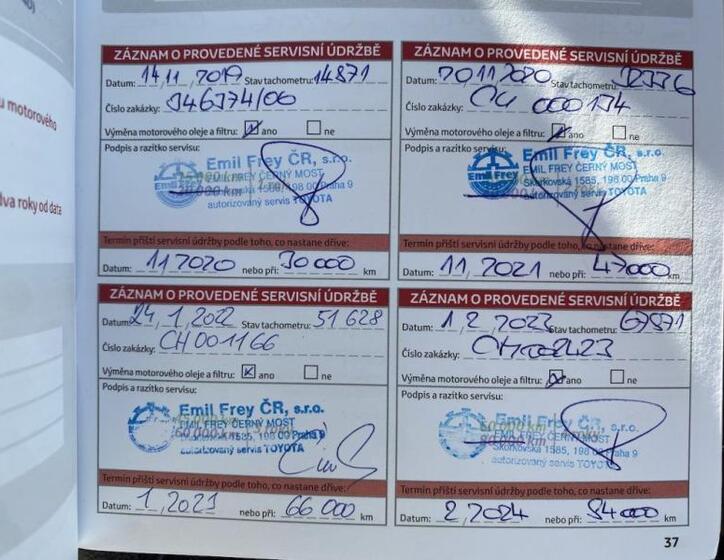 u motorového
dva roky od data
ZÁZNAM O PROVEDENÉ SERVISNÍ ÚDRŽBĚ
Datum: 14.11.2019 Stav tachometru: 14871
Číslo zakázky: 346374/06
Výměna motorového oleje a filtru: ano ne
Podpis a razítko servisu:
Emil Frey ČR, s.r.o.
EMIL FREY ČERNÝ MOST
Skorkovská 1585, 198 00 Praha 9
autorizovaný servis TOYOTA
Emil Frey
Termín příští servisní údržby podle toho, co nastane dříve:
Datum: 11 2020 nebo při: 30 000 km
ZÁZNAM O PROVEDENÉ SERVISNÍ ÚDRŽBĚ
Datum: 20 11 2020 Stav tachometru: 32336
Číslo zakázky: 000134
Výměna motorového oleje a filtru: ano ne
Podpis a razítko servisu:
Emil Frey ČR, s.r.o.
EMIL FREY ČERNÝ MOST
Skorkovská 1585, 198 00 Praha 9
autorizovaný servis TOYOTA
Emil Frey
Termín příští servisní údržby podle toho, co nastane dříve:
Datum: 11, 2021 nebo při: 47000 km
ZÁZNAM O PROVEDENÉ SERVISNÍ ÚDRŽBĚ
Datum: 24, 1, 2022 Stav tachometru: 51 628
Číslo zakázky: CH001166
Výměna motorového oleje a filtru: ano ne
Podpis a razítko servisu:
Emil Frey ČR, s.r.o.
EMIL FREY ČERNÝ MOST
60 000 km
1585, 198 00 Praha 9
autorizovaný servis TOYOTA
Termín příští servisní údržby podle toho, co nastane dříve:
Datum: 1, 2021 nebo při: 66 000 km
ZÁZNAM O PROVEDENÉ SERVISNÍ ÚDRŽBĚ
Datum: 1, 2, 2023 Stav tachometru: 67571
Číslo zakázky:
Výměna motorového oleje a filtru: ano ne
Podpis a razítko servisu:
Emil Frey ČR, s.r.o.
EMIL FREY ČERNÝ MOST
Skorkovská 1585, 198 00 Praha 9
autorizovaný servis TOYOTA
Termín příští servisní údržby podle toho, co nastane dříve:
Datum: 2, 2024 nebo při: 84000 km
37